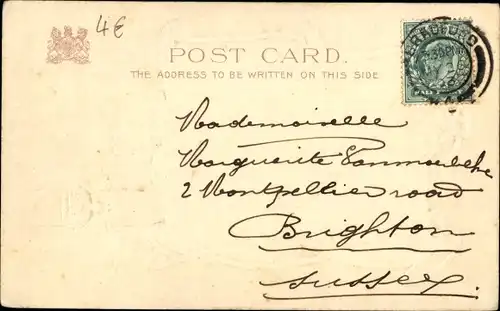 4€
POST CARD.
THE ADDRESS TO BE WRITTEN ON THIS SIDE
Mademoiselle
Marguerite
2 Montpellier road
Brighton
Sussex.